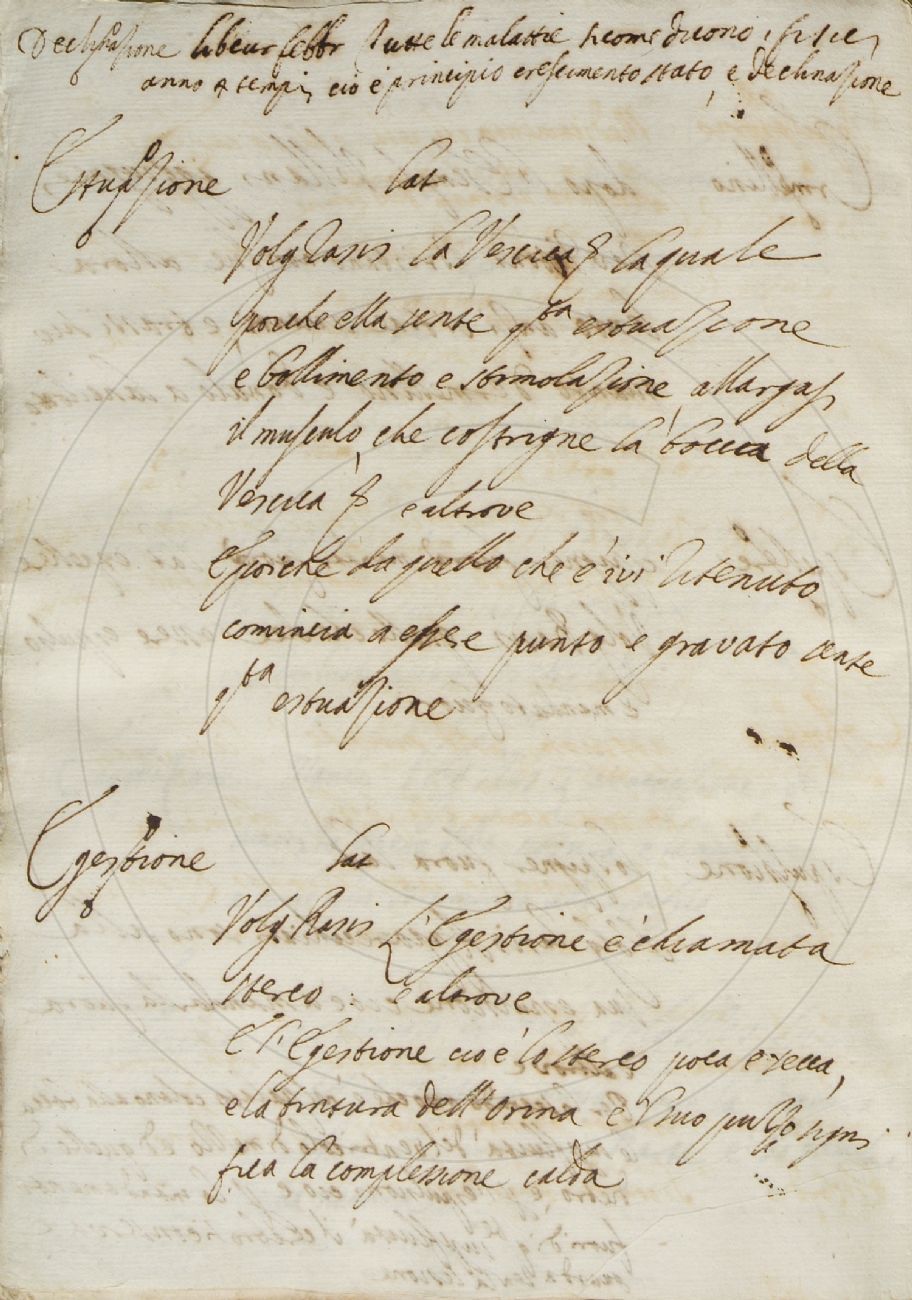 Declinazione libcur febbr Tutte le malattie si come dicono i fisici
anno 4 tempi, cio è principio crescimento stato, e declinazione
Estuazione Lat
Volg Rasis la Vescica laquale
poiche ella sente qta estuazione
e bollimento e stimolazione, allargasi
il musculo, che costrigne la bocca della
Vescica e altrove
E poiche da quello che è ivi ritenuto
comincia a essere punto e gravato sente
qta estuazione
Egestione Lat
Volg. Rasis L'Egestione è chiamata
stereo : e altrove
E l'Egestione cio è lo stereo poca e secca,
e la tintura dell'orina e 'l suo puzzo signi
fica la complessione calda